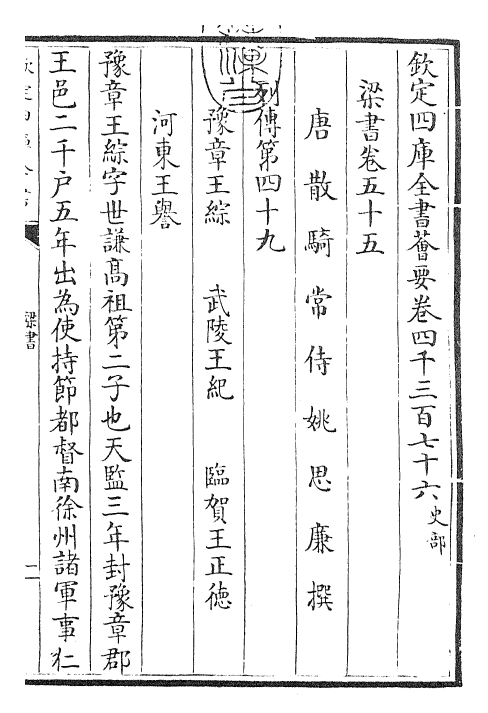 欽定四庫全書薈要卷四千三百七十六史部
梁書卷五十五
唐散騎常侍姚思廉撰
列傳第四十九
豫章王綜 武陵王紀 臨賀王正德
河東王譽
豫章王綜字世謙髙祖第二子也天監三年封豫章郡
王邑二千户五年出為使持節都督南徐州諸軍事仁
梁書
一